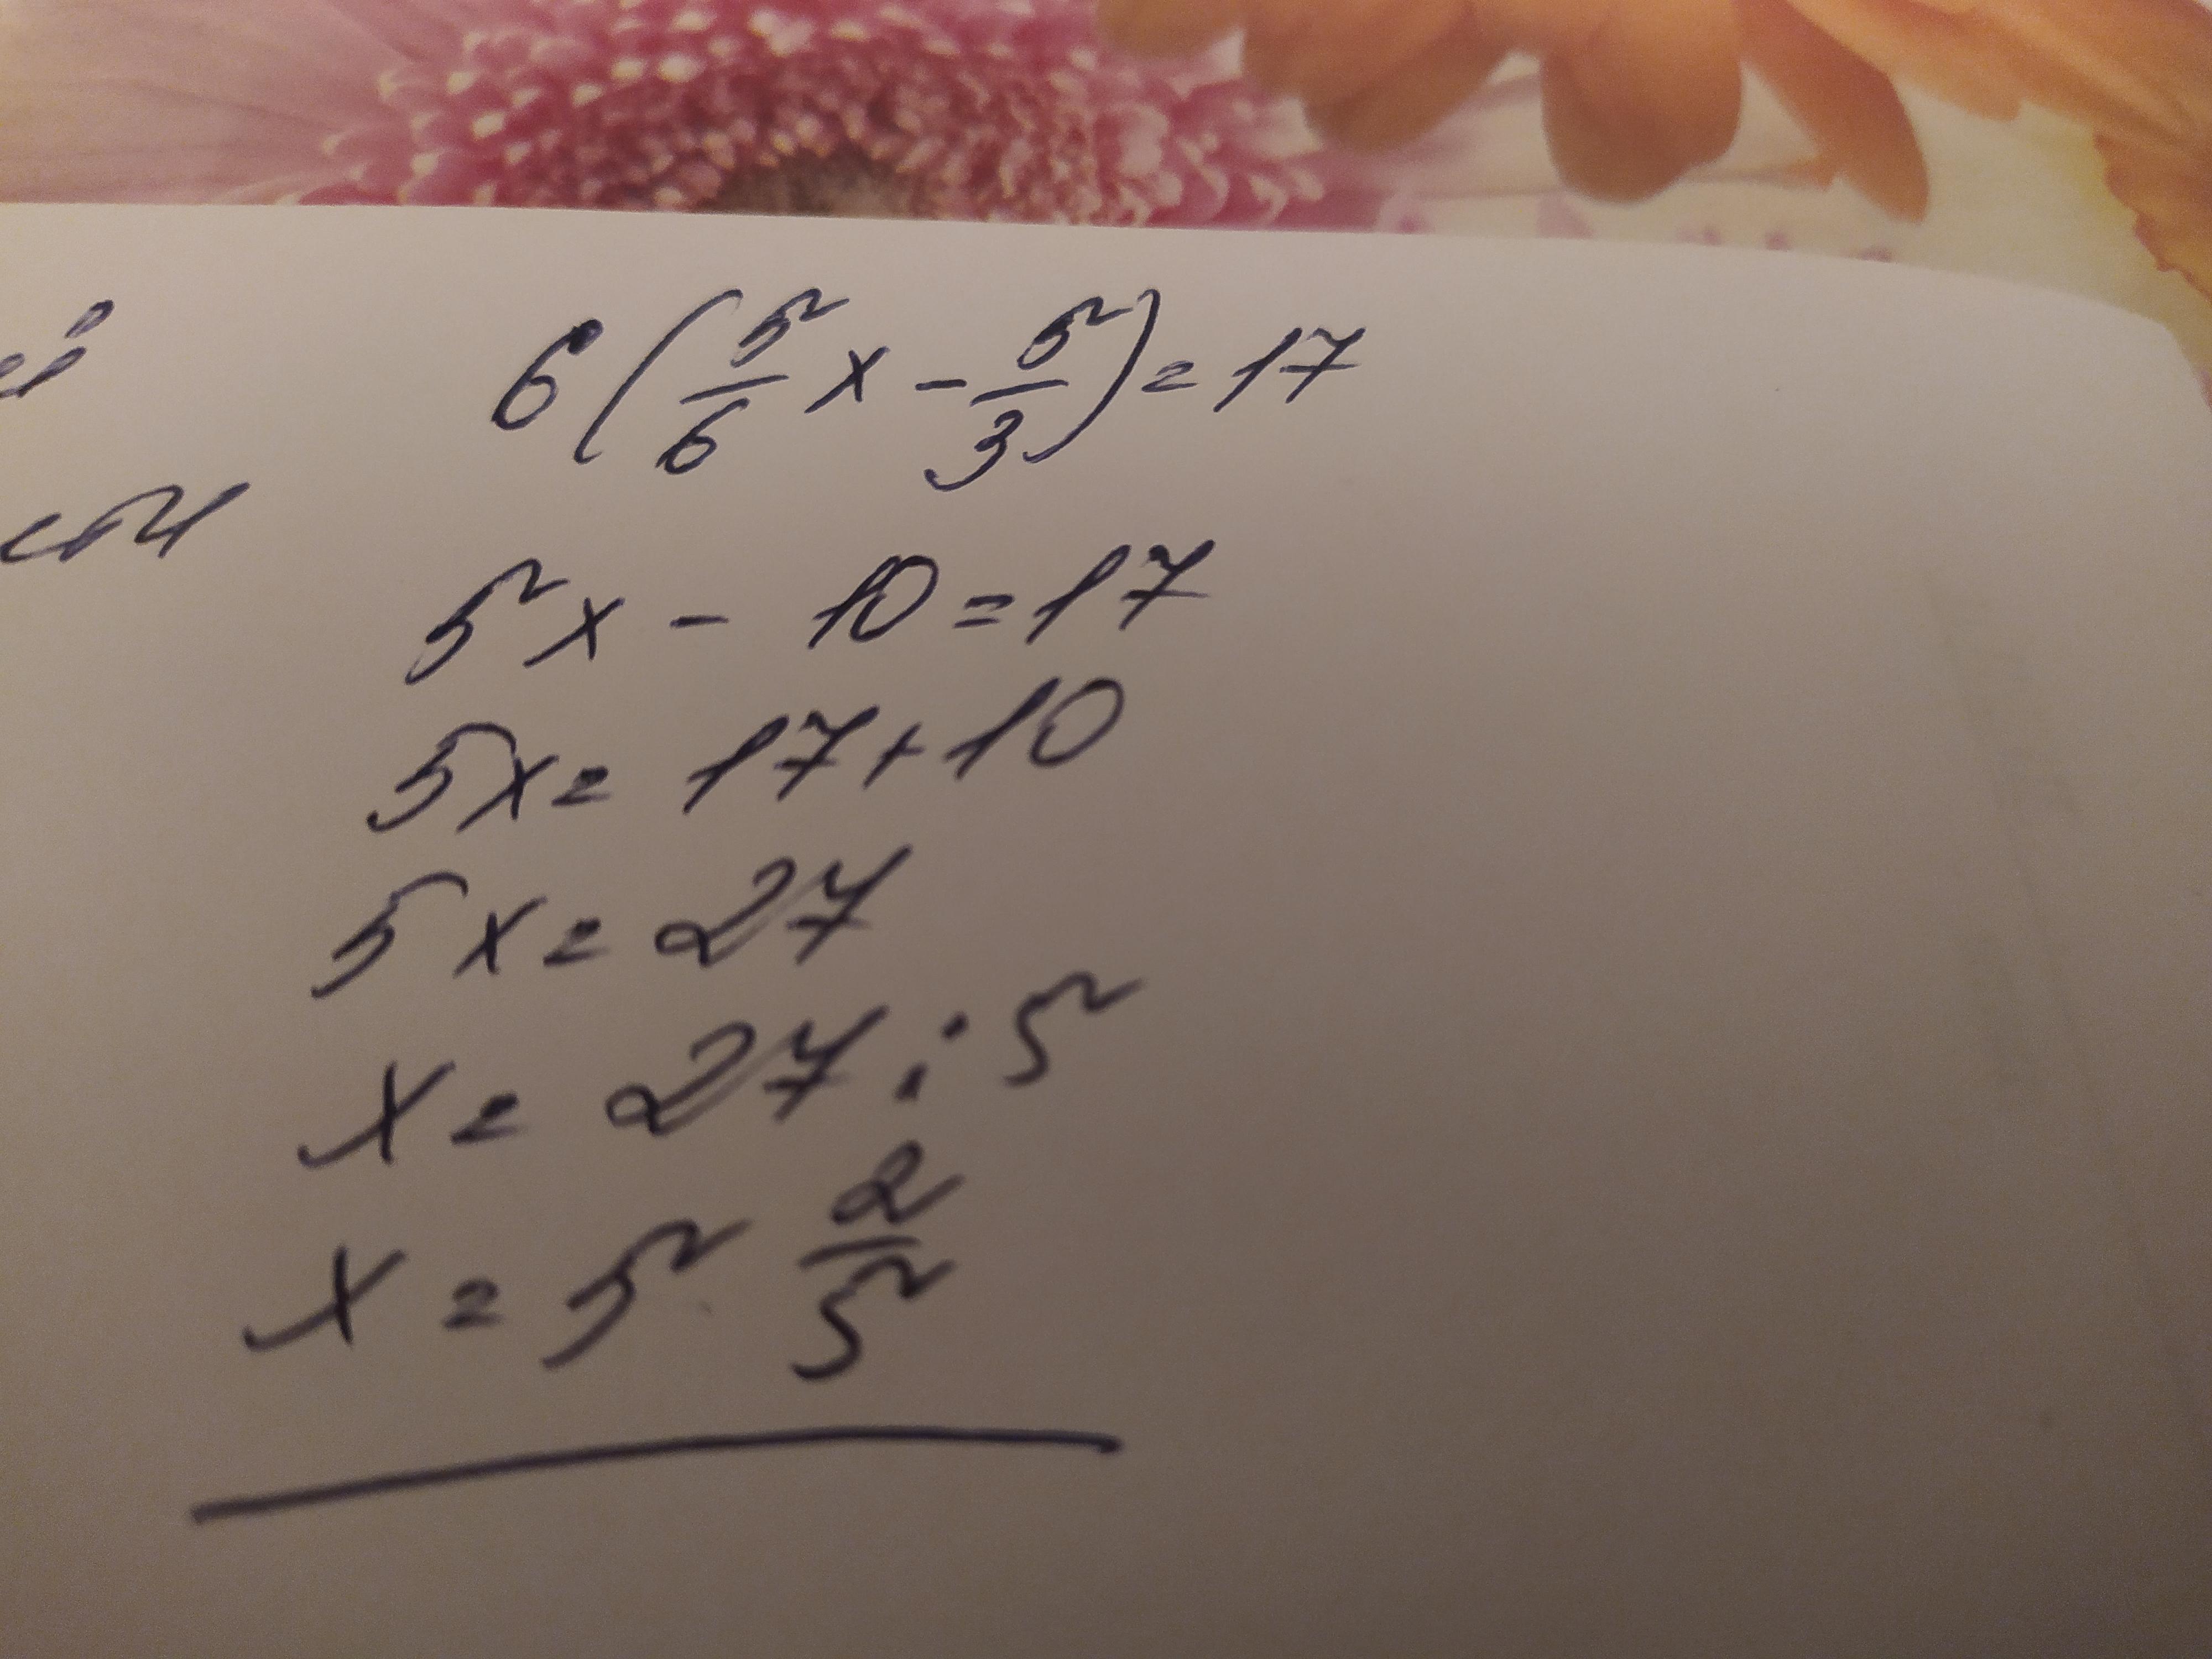 6(5/6 x - 5/3) = 17
5x - 10 = 17
5x = 17 + 10
5x = 27
x = 27 : 5
x = 5 2/5